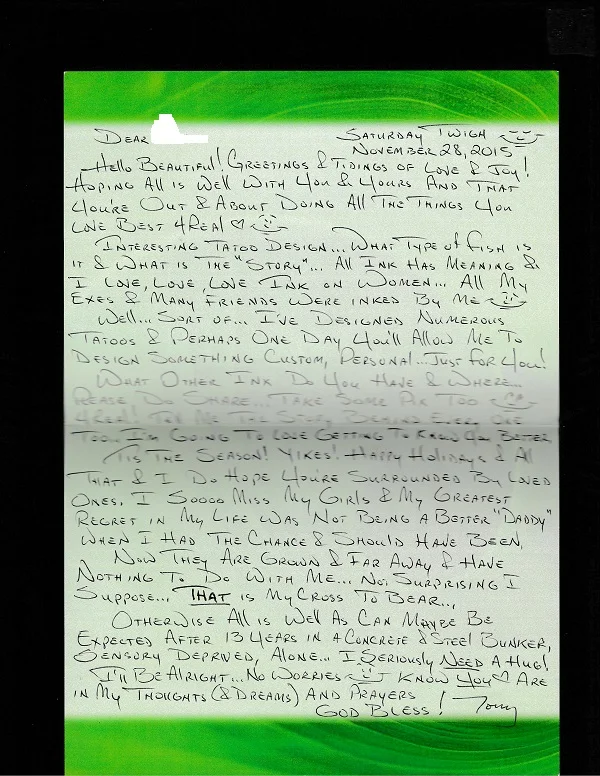 Dear
Saturday Twigh
November 28, 2015
Hello Beautiful! Greetings & Tidings of Love & Joy!
Hoping All is Well With You & Yours And That
You're Out & About Doing All The Things You
Love Best 4Real ♡
Interesting Tatoo Design... What Type of Fish is
it & What is The "Story"... All Ink Has Meaning &
I Love, Love, Love Ink on Women... All My
Exes & Many Friends Were Inked By Me
Well... Sort of... I've Designed Numerous
Tatoos & Perhaps One Day You'll Allow Me To
Design Something Custom, Personal... Just For You!
What Other Ink Do You Have & Where...
Please Do Share... Take Some Pix Too
4Real! Tell Story Behind Every One
Too.. I'm Going To Love Getting To Know You Better
'Tis The Season! Yikes! Happy Holidays & All
That & I Do Hope You're Surrounded By Loved
Ones. I Soooo Miss My Girls & My Greatest
Regret in My Life Was Not Being A Better "Daddy"
When I Had The Chance & Should Have Been.
Now They Are Grown & Far Away & Have
Nothing To Do With Me... Not Surprising I
Suppose... THAT is My Cross To Bear...
Otherwise All is Well As Can Maybe Be
Expected After 13 Years in A Concrete & Steel Bunker,
Sensory Deprived, Alone... I Seriously Need A Hug!
I'll Be Alright... No Worries Know You ♡ Are
in My Thoughts (& Dreams) And Prayers
God Bless! Tony